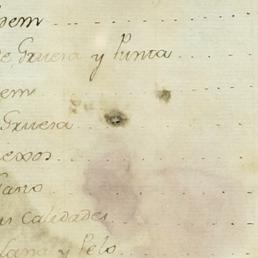 dem
de Gruesa y Punta
em
Gruesa
esos
lano
as calidades
lana y Pelo